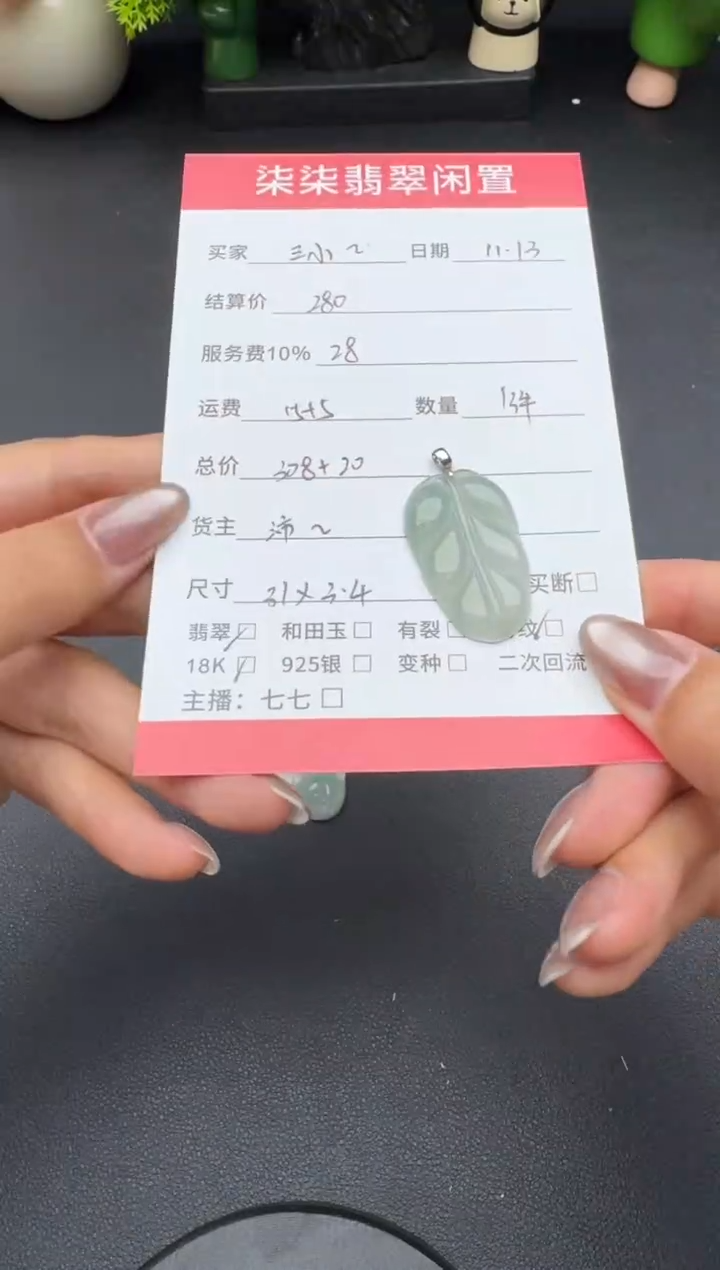 柒柒翡翠闲置
买家 三小~ 日期 11.13
结算价 280
服务费10% 28
运费 15+5 数量 1件
总价 308+20
货主 沛~
尺寸 31×3.4 买断
翡翠 和田玉 有裂 纹
18K 925银 变种 二次回流
主播：七七